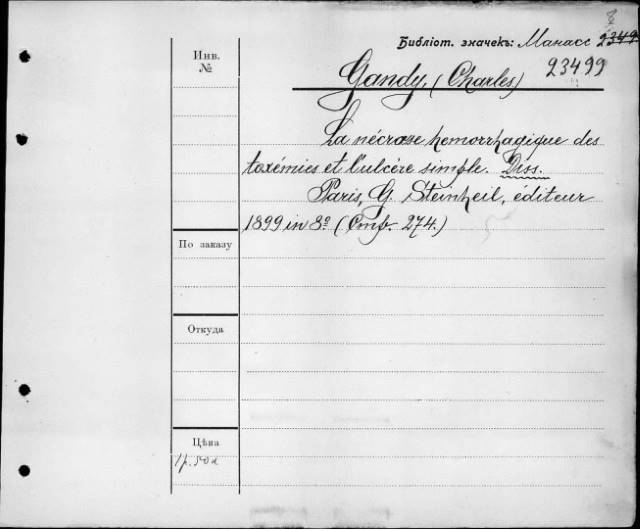 Библіот. значекъ: Манасс 2349
23499
Инв.
№
Gandy, (Charles)
La nécrose hemorrhagique des
toxémies et l'ulcère simple. Diss.
Paris, G. Steinheil, éditeur
1899 in 8º (Стр. 274.)
По заказу
Откуда
Цѣна
1р. 50к